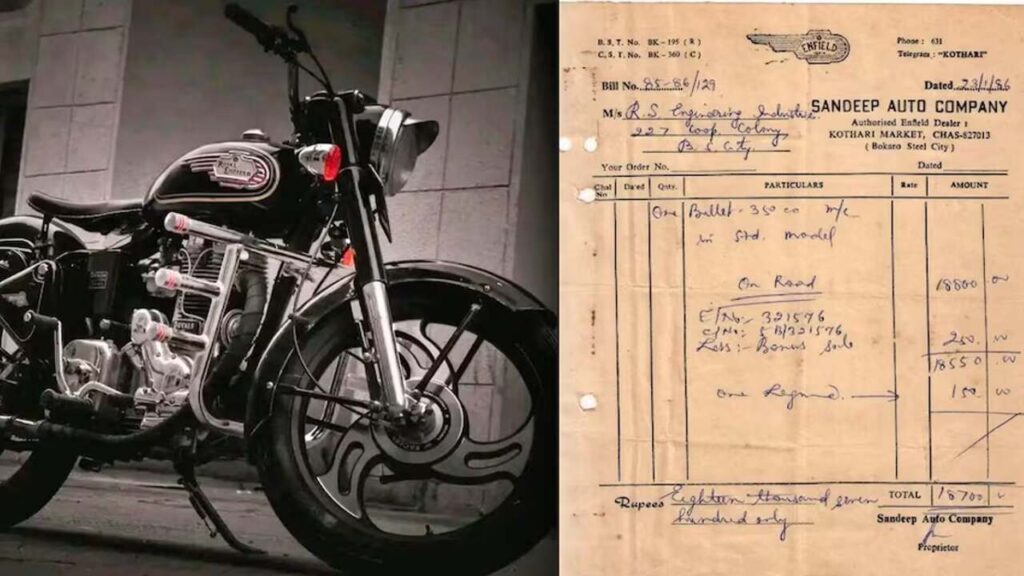 ROYAL
ENFIELD
B.S.T. No. BK-195 (R)
C.S.T. No. BK-360 (C)
ENFIELD
Phone : 631
Telegram : "KOTHARI"
Bill No. 85-86/129
Dated 23/1/86
M/s R.S. Engineering Industries
227 Coop. Colony
B.S. City
SANDEEP AUTO COMPANY
Authorised Enfield Dealer :
KOTHARI MARKET, CHAS-827013
( Bokaro Steel City )
Your Order No.
Dated
Chal No
Da'ed
Qnty.
PARTICULARS
Rate
AMOUNT
One Bullet - 350 cc m/c
in Std. model
On Road 18800 00
E/No:- 321576
C/No:- 5B/321576
Less:- Bonus 250.00
18550.00
one Legguard. → 150 00
Rupees Eighteen thousand seven
hundred only
TOTAL 18700 00
Sandeep Auto Company
Proprietor